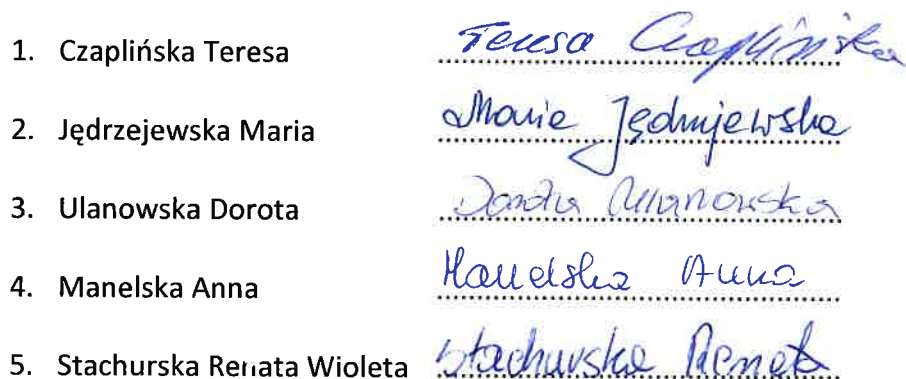 1. Czaplińska Teresa Teresa Czaplińska
2. Jędrzejewska Maria Maria Jędrzejewska
3. Ulanowska Dorota Dorota Ulanowska
4. Manelska Anna Manelska Anna
5. Stachurska Renata Wioleta Stachurska Renata